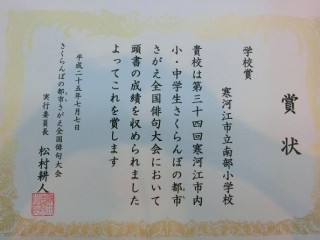 賞状
学校賞
寒河江市立南部小学校
貴校は第三十四回寒河江市内
小・中学生さくらんぼの都市
さがえ全国俳句大会において
頭書の成績を収められました
よってこれを賞します
平成二十五年七月七日
さくらんぼの都市さがえ全国俳句大会
実行委員長 松村耕人